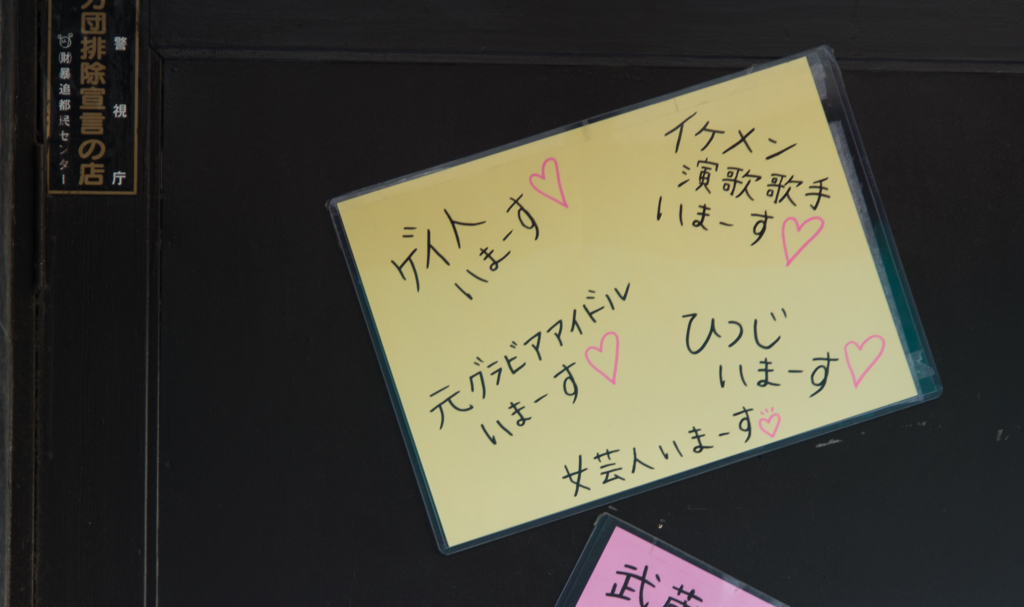 力団排除宣言の店
警視庁
(財)暴追都民センター
ゲイ人
いまーす
イケメン
演歌歌手
いまーす
元グラビアアイドル
いまーす
ひつじ
いまーす
女芸人いまーす
武蔵